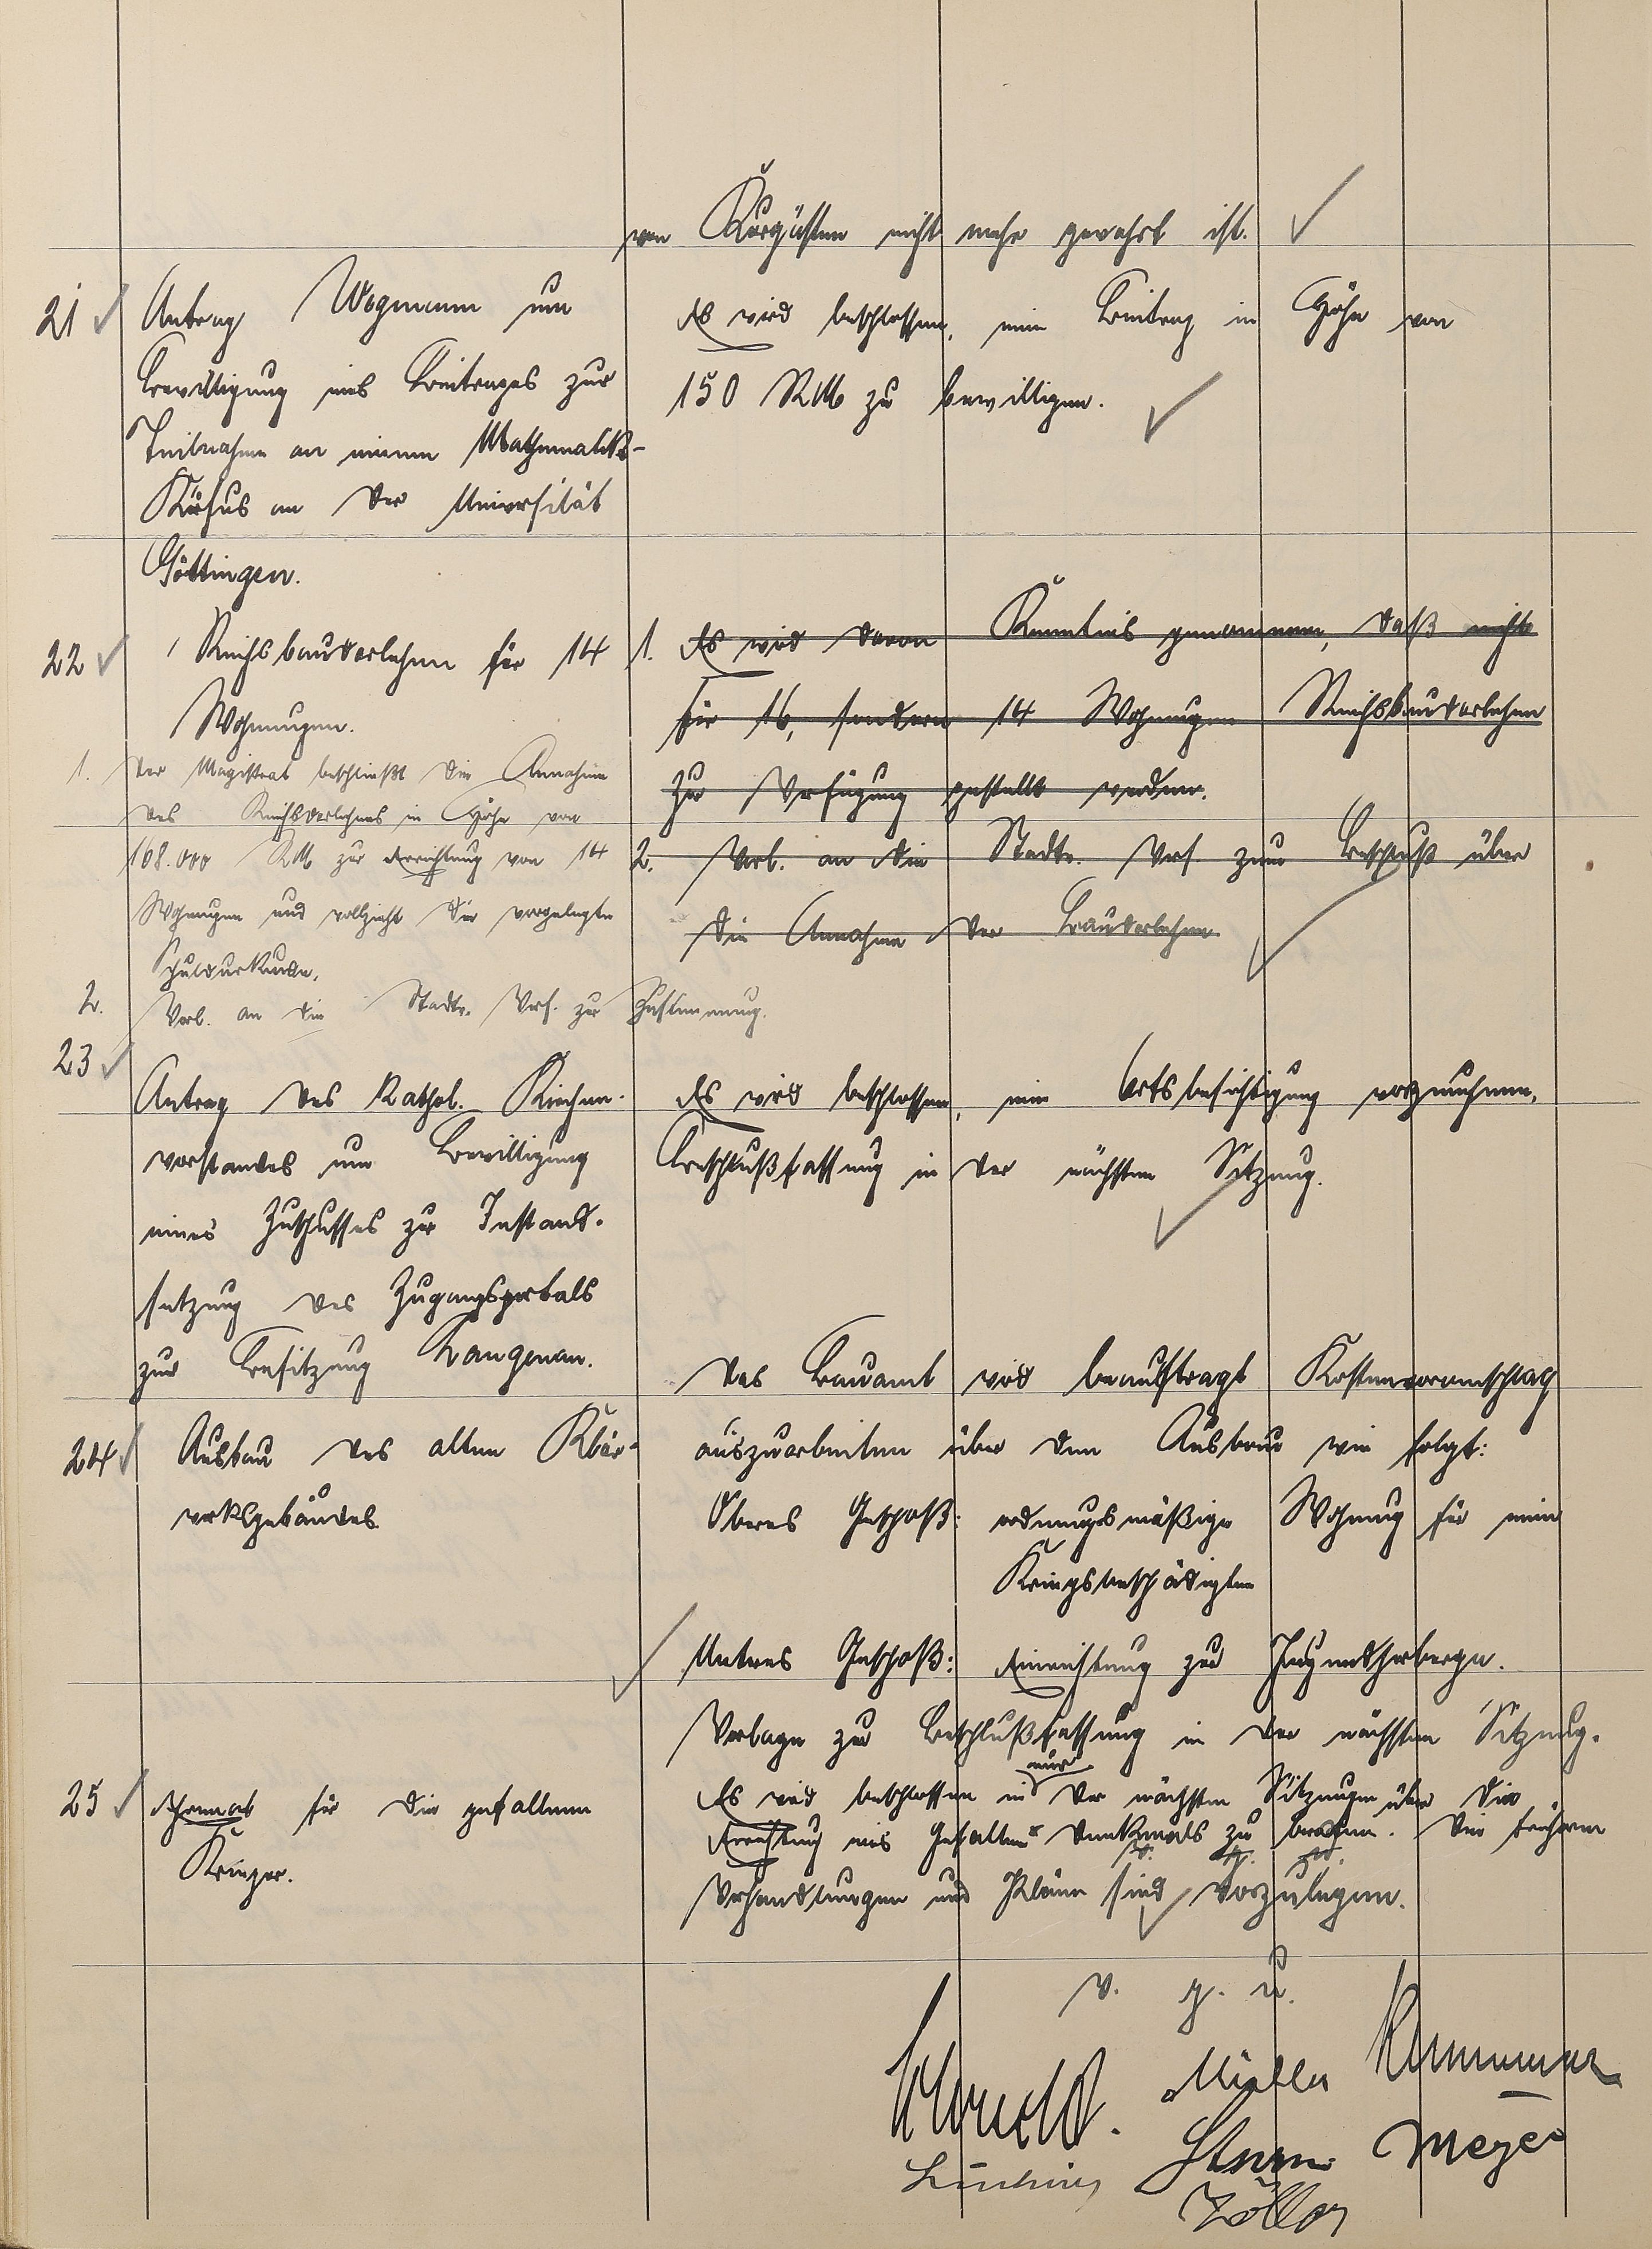 von Kurgästen nicht mehr gewahrt ist.
21
Antrag Wegmann um
Bewilligung eines Beitrages zur
Teilnahme an einem Mathematik-
Kursus an der Universität
Göttingen.
Es wird beschlossen, eine Beitrag in Höhe von
150 RM zu bewilligen.
22
Reichsbaudarlehen für 14
Wohnungen.
1. Es wird davon Kenntnis genommen, daß nicht
für 16, sondern 14 Wohnungen Reichsbaudarlehen
zur Verfügung gestellt werden.
2. Vorl. an die Stadtv. Vers. zum Beschluß über
die Annahme der Baudarlehen
1. Der Magistrat beschließt die Annahme
des Reichsdarlehens in Höhe von
168.000 RM zur Errichtung von 14
Wohnungen und vollzieht die vorgelegte
Schuldurkunde.
2. Vorl. an die Stadtv. Vers. zur Zustimmung.
23
Antrag des kathol. Kirchen-
vorstandes um Bewilligung
eines Zuschusses zur Instand-
setzung des Zugangsportals
zur Besitzung Langenau.
Es wird beschlossen, eine Ortsbesichtigung vorzunehmen,
Beschlußfassung in der nächsten Sitzung.
24
Ausbau des alten Klär-
werksgebäudes.
Das Bauamt wird beauftragt Kostenvoranschlag
auszuarbeiten über den Ausbau wie folgt:
Oberes Geschoß: ordnungsmäßige Wohnung für einen
Kriegsbeschädigten
Unteres Geschoß: Einrichtung zur Jugendherberge.
Vorlage zur Beschlußfassung in der nächsten Sitzung.
25
Ehrenmal für die gefallenen
Krieger.
Es wird beschlossen in einer der nächsten Sitzungen über die
Errichtung eines Gefallenen-Denkmals zu beraten. Die früheren
v. g. u.
Verhandlungen und Pläne sind vorzulegen.
v. g. u.
Müller
Sturm Meyer
Zöller